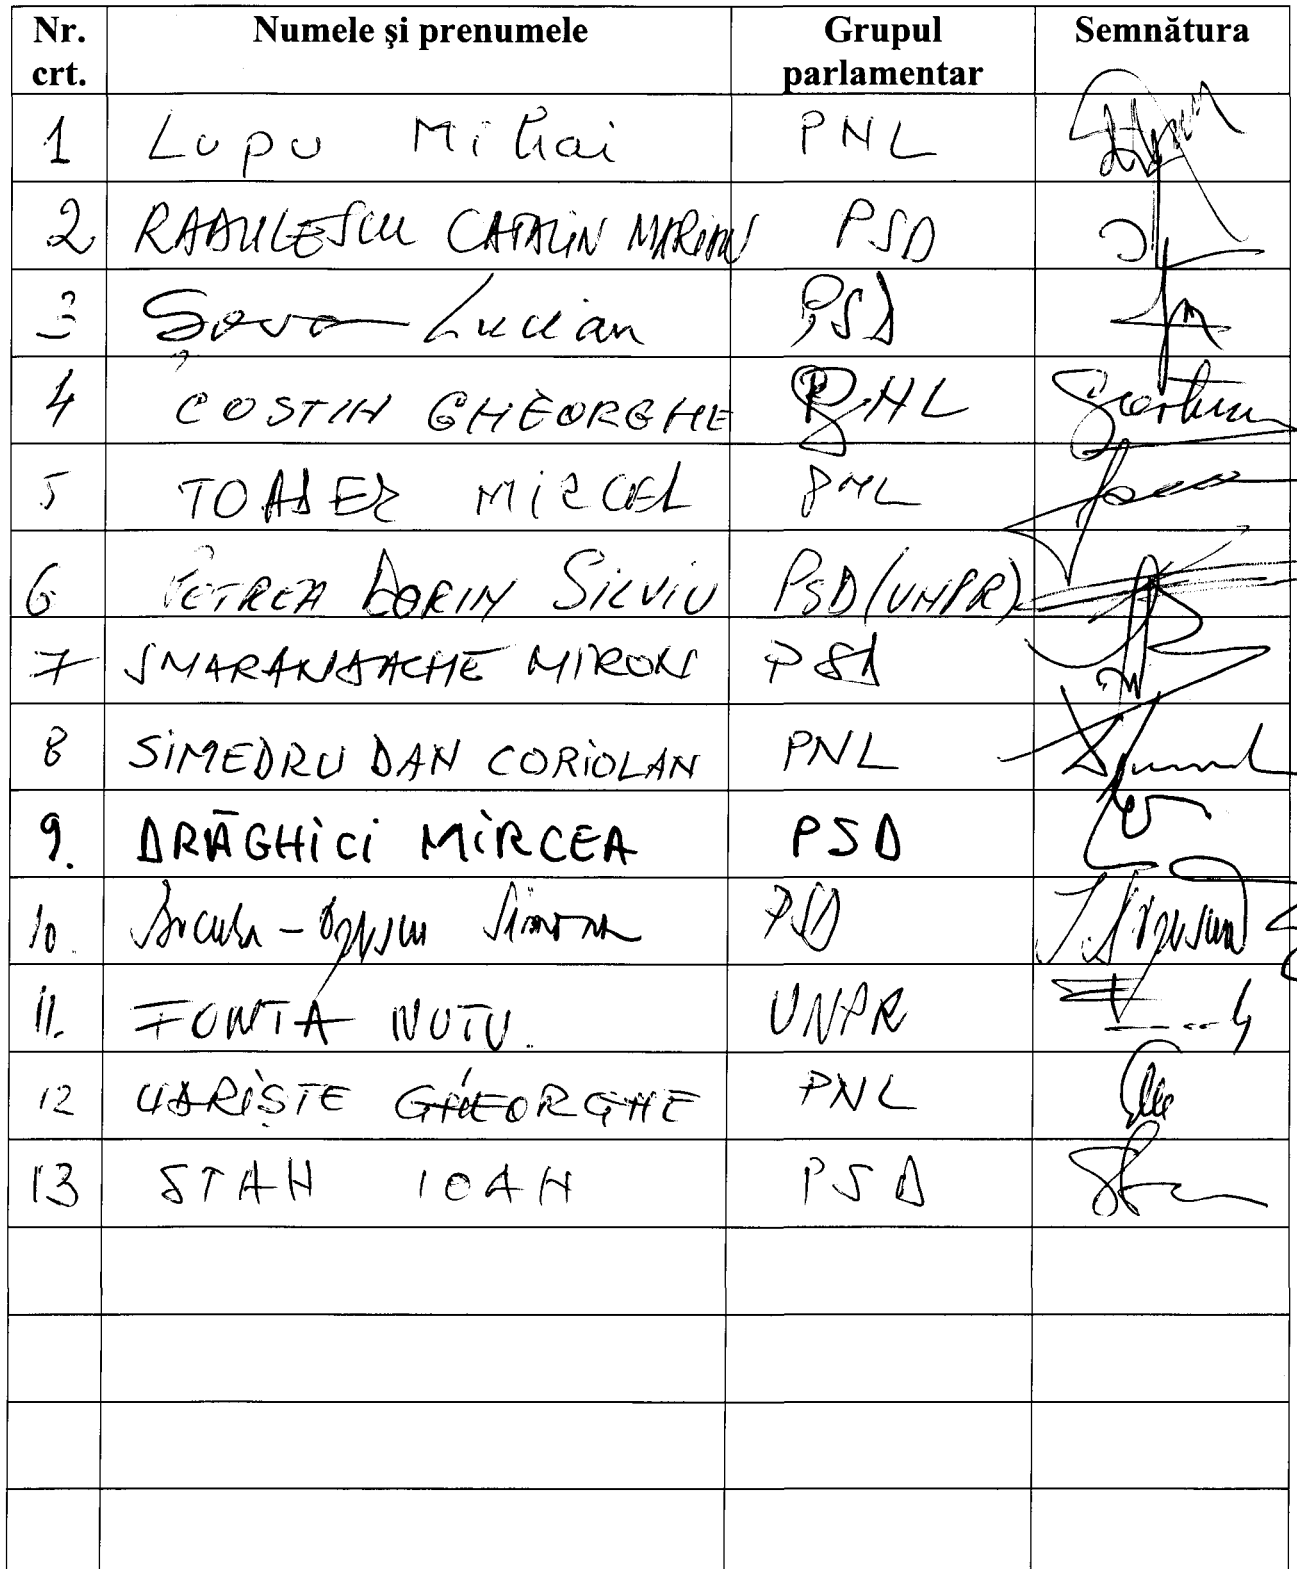 Nr. crt. Numele şi prenumele Grupul parlamentar Semnătura
1 Lupu Mihai PNL
2 RADULESCU CATALIN MARIAN PSD
3 Șova Lucian PSD
4 COSTIN GHEORGHE PNL
5 TOADER MIRCEA PNL
6 PETREA DORIN SILVIU PSD (UNPR)
7 SMARANDACHE MIRON PSD
8 SIMEDRU DAN CORIOLAN PNL
9. DRĂGHICI MIRCEA PSD
10. Simona PSD
11. FONTA NUTU. UNPR
12 UDRIȘTE GHEORGHE PNL
13 STAN IOAN PSD